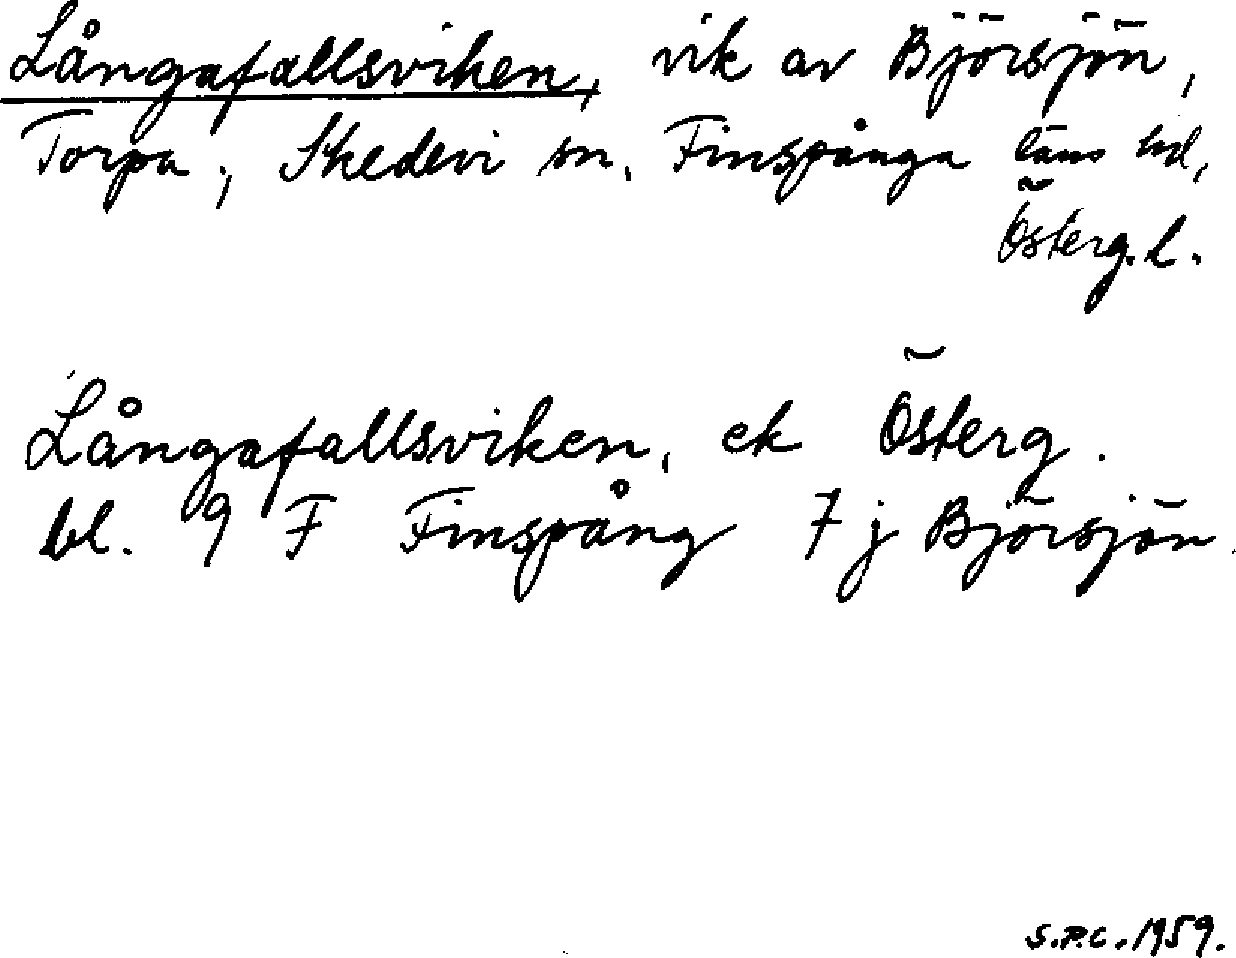 Långafallsviken, vik av Björsjön,
Torpa, Skedevi sn, Finspånga läns hd,
Österg. l.
Långafallsviken, ek Österg.
bl. 9 F Finspång 7 j Björsjön
S.P.C. 1959.